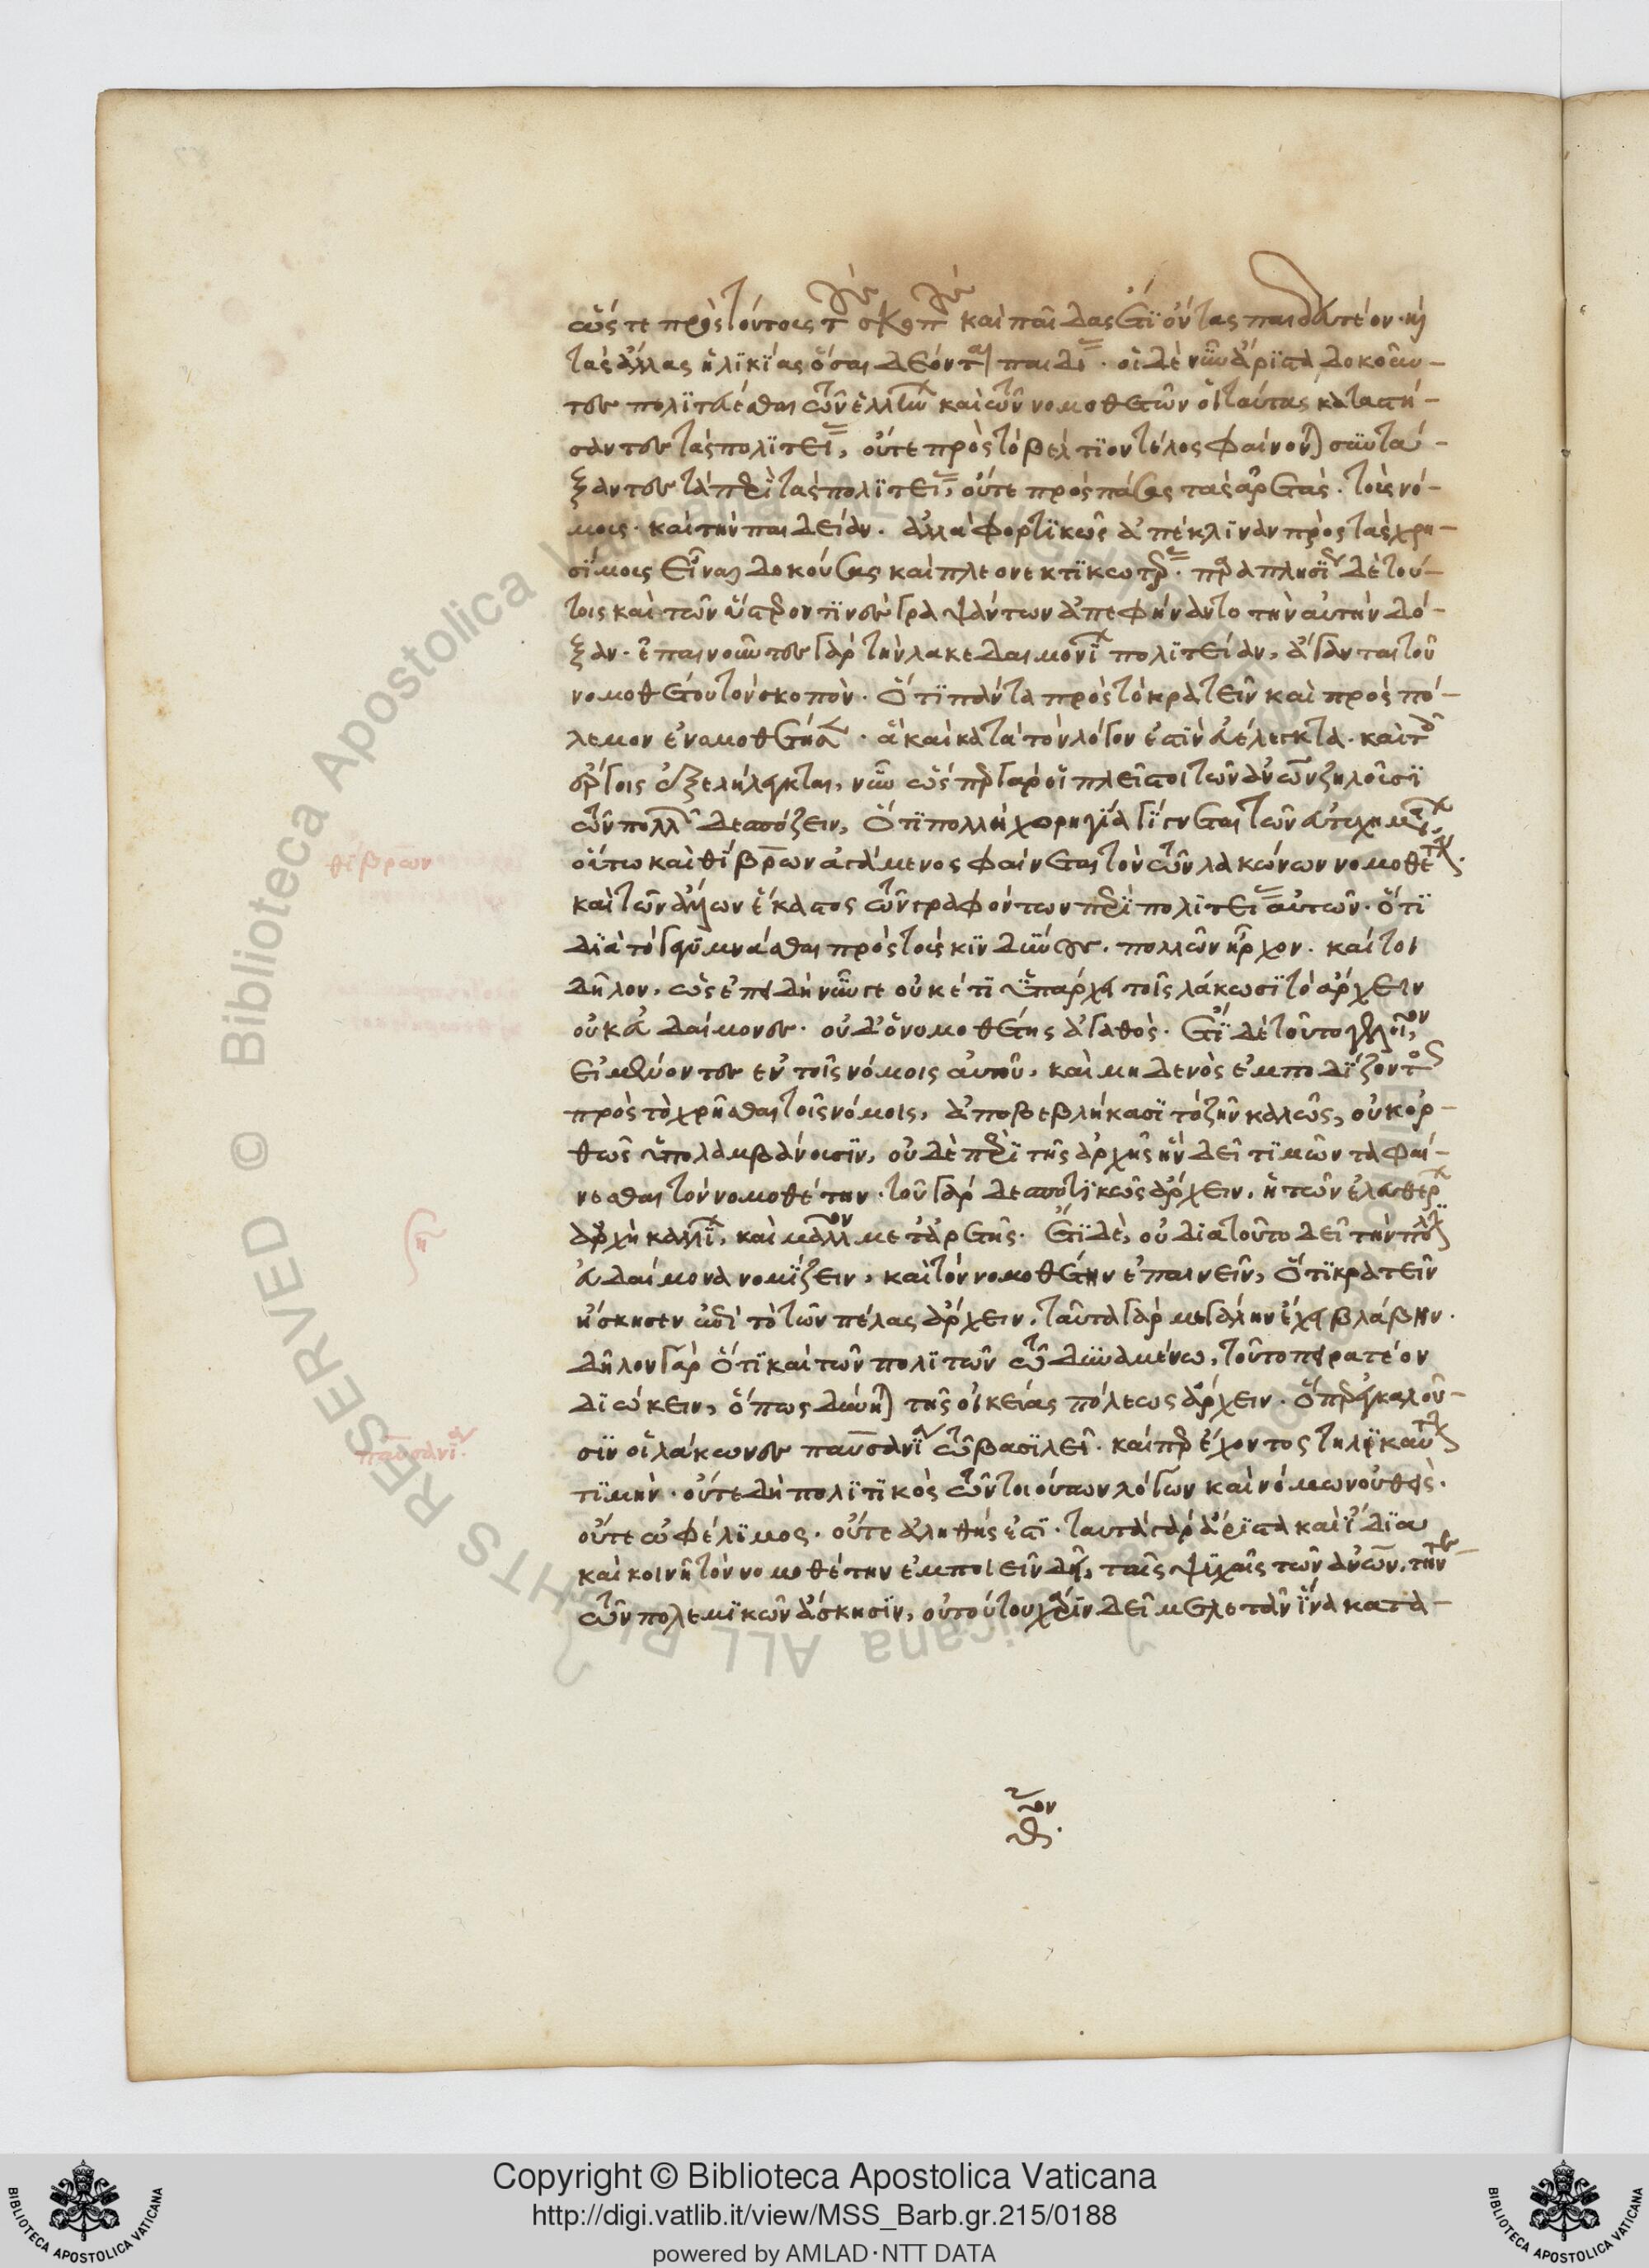 ὥστε πρὸς τούτους τοὺς σκοποὺς καὶ παῖδας ἔτι ὄντας παιδευτέον· καὶ
τὰς ἄλλας ἡλικίας ὅσαι δέονται παιδείας· οἱ δὲ νῦν ἄριστα δοκοῦν-
τες πολιτεύεσθαι τῶν ἑλλήνων καὶ τῶν νομοθετῶν οἱ ταύτας καταστή-
σαντες τὰς πολιτείας, οὔτε πρὸς τὸ βέλτιον τέλος φαίνονται συντά-
ξαντες τὰ περὶ τὰς πολιτείας, οὔτε πρὸς πάσας τὰς ἀρετὰς· τοὺς νό-
μους· καὶ τὴν παιδείαν. ἀλλὰ φορτικῶς ἀπέκλιναν πρὸς τὰς χρη-
σίμους εἶναι δοκούσας καὶ πλεονεκτικωτέρας· παραπλησίως δὲ τού-
τοις καὶ τῶν ὕστερον τινες γραψάντων ἀπεφήναντο τὴν αὐτὴν δό-
ξαν· ἐπαινοῦντες γὰρ τὴν λακεδαιμονίων πολιτείαν, ἄγανται τοῦ
νομοθέτου τὸν σκοπὸν· ὅτι πάντα πρὸς τὸ κρατεῖν καὶ πρὸς πό-
λεμον ἐνομοθέτησεν· ἃ καὶ κατὰ τὸν λόγον ἐστὶν εὐέλεγκτα· καὶ τοῖς
ἔργοις ἐξελήλεγκται, νῦν ὥσπερ γὰρ οἱ πλεῖστοι τῶν ἀνων ζηλοῦσι
τῶν πολλῶν δεσπόζειν, ὅτι πολλὴ χορηγία γίγνεται τῶν εὐτυχημάτων,
οὕτω καὶ θίβρων ἀγάμενος φαίνεται τὸν τῶν λακώνων νομοθέτην.
καὶ τῶν ἄλλων ἕκαστος τῶν γραφόντων περὶ πολιτείας αὐτῶν· ὅτι
διὰ τὸ γεγυμνάσθαι πρὸς τοὺς κινδύνους· πολλῶν ἦρχον. καίτοι
δῆλον, ὡς ἐπειδὴ νῦν γε οὐκέτι ὑπάρχει τοῖς λάκωσι τὸ ἄρχειν
οὐκ εὐδαίμονες· οὐδ᾽ ὁ νομοθέτης ἀγαθὸς· ἔτι δὲ τοῦτο γελοῖον,
εἰ μένοντες ἐν τοῖς νόμοις αὐτοῦ, καὶ μηδενὸς ἐμποδίζοντος
πρὸς τὸ χρῆσθαι τοῖς νόμοις, ἀποβεβλήκασι τὸ ζῆν καλῶς, οὐκ ὀρ-
θῶς ὑπολαμβάνουσιν, οὐδὲ περὶ τῆς ἀρχῆς ἣν δεῖ τιμῶντα φαί-
νεσθαι τὸν νομοθέτην· τοῦ γὰρ δεσποτικῶς ἄρχειν, ἡ τῶν ἐλευθέρων
ἀρχὴ καλλίων, καὶ μᾶλλον μετ᾽ ἀρετῆς· ἔτι δὲ, οὐ διὰ τοῦτο δεῖ τὴν πόλιν
εὐδαίμονα νομίζειν, καὶ τὸν νομοθέτην ἐπαινεῖν, ὅτι κρατεῖν
ἤσκησεν ἐπὶ τὸ τῶν πέλας ἄρχειν, ταῦτα γὰρ μεγάλην ἔχει βλάβην·
δῆλον γὰρ ὅτι καὶ τῶν πολιτῶν τῷ δυναμένῳ, τοῦτο πειρατέον
διώκειν, ὅπως δύνηται τῆς οἰκείας πόλεως ἄρχειν· ὅπερ ἐγκαλοῦ-
σιν οἱ λάκωνες παυσανίᾳ τῷ βασιλεῖ· καίπερ ἔχοντος τηλικαύτην
τιμήν· οὔτε δὴ πολιτικὸς τῶν τοιούτων λόγων καὶ νόμων οὐθεὶς·
οὔτε ὠφέλιμος· οὔτε ἀληθής ἐστι· ταυτὰ γὰρ ἄριστα καὶ ἰδίᾳ
καὶ κοινῇ τὸν νομοθέτην ἐμποιεῖν δεῖ, ταῖς ψυχαῖς τῶν ἀνων, τήν τε
τῶν πολεμικῶν ἄσκησιν, οὐ τούτου χάριν δεῖ μελετᾶν ἵνα κατα-
θίβρων
παυσανίας